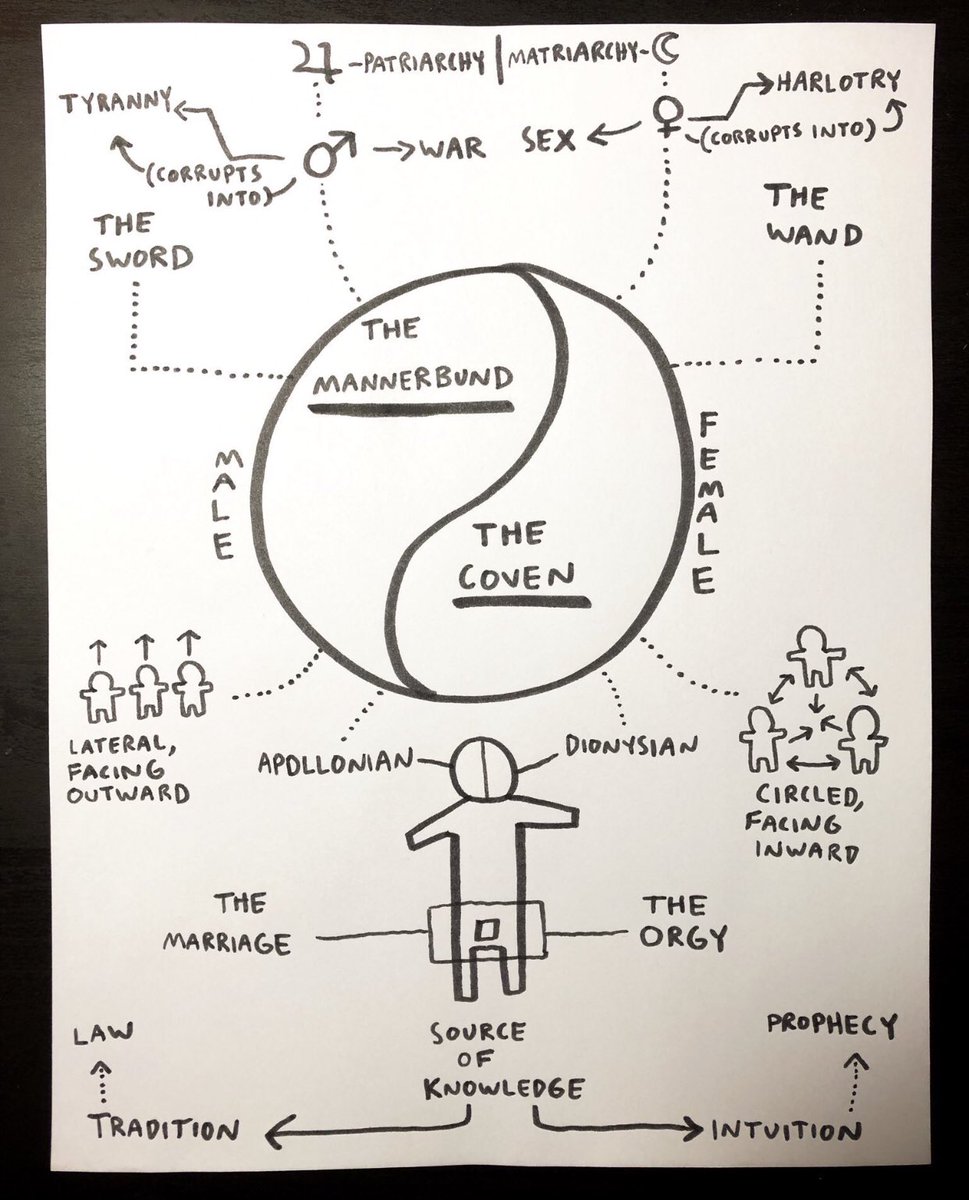 ♃-PATRIARCHY | MATRIARCHY-☾
TYRANNY
HARLOTRY
(CORRUPTS
INTO)
♂ → WAR
SEX ← ♀
(CORRUPTS INTO)
THE
SWORD
THE
WAND
THE
MANNERBUND
MALE
FEMALE
THE
COVEN
LATERAL,
FACING
OUTWARD
APOLLONIAN
DIONYSIAN
CIRCLED,
FACING
INWARD
THE
MARRIAGE
THE
ORGY
LAW
SOURCE
OF
KNOWLEDGE
PROPHECY
TRADITION
INTUITION